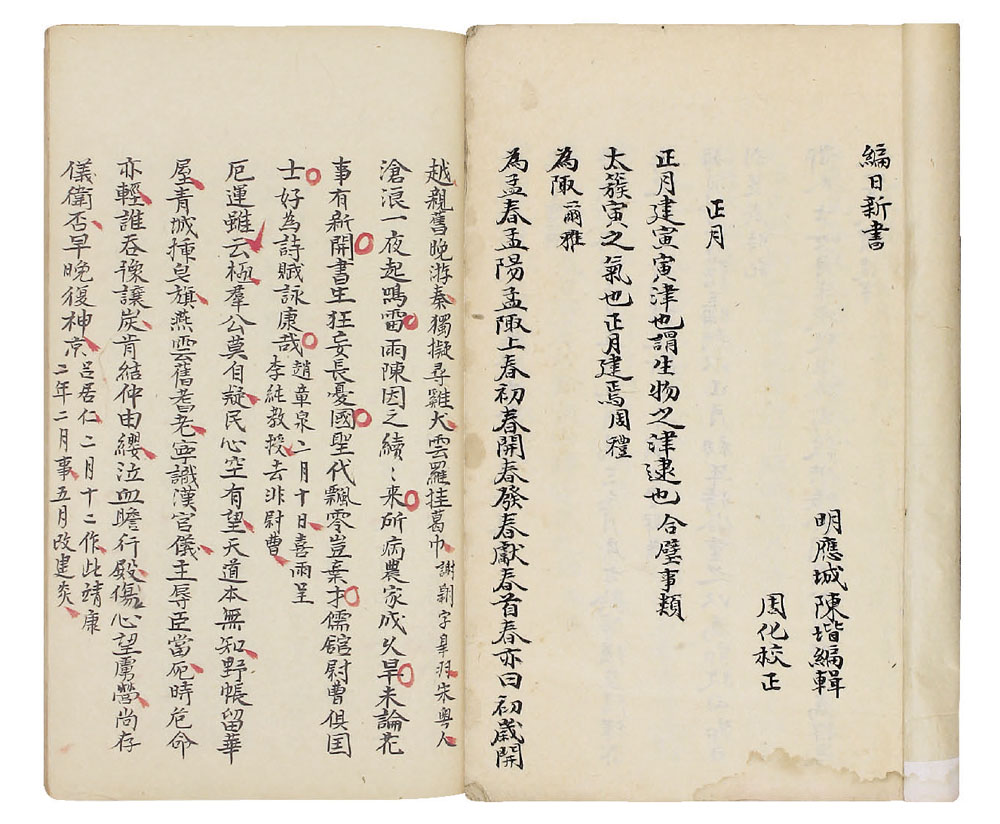 編日新書
明應城陳堦編輯
周化校正
正月
正月建寅寅津也謂生物之津逮也合璧事類
太簇寅之氣也正月建焉周禮
為陬爾雅
為孟春孟陽孟陬上春初春開春發春獻春首春亦曰初歲開
越親舊晚游秦獨擬尋雞犬雲羅挂葛巾謝翱字皐羽宋粵人
滄浪一夜起鳴雷雨陳因之續〻來所病農家成久旱未論花
事有新開書生狂妄長憂國聖代飄零豈棄才儒館尉曹俱国
士好為詩賦詠康哉趙章泉二月十日喜雨呈
李純教授去非尉曹
厄運雖云極羣公莫自疑民心空有望天道本無知野帳留華
屋青城揷皇旗燕雲舊耆老寧識漢官儀主辱臣當死時危命
亦輕誰吞豫讓炭肯結仲由纓泣血瞻行殿傷心望虜營尚存
儀衛否早晚復神京呂居仁二月十二作此靖康
二年二月事五月改建炎